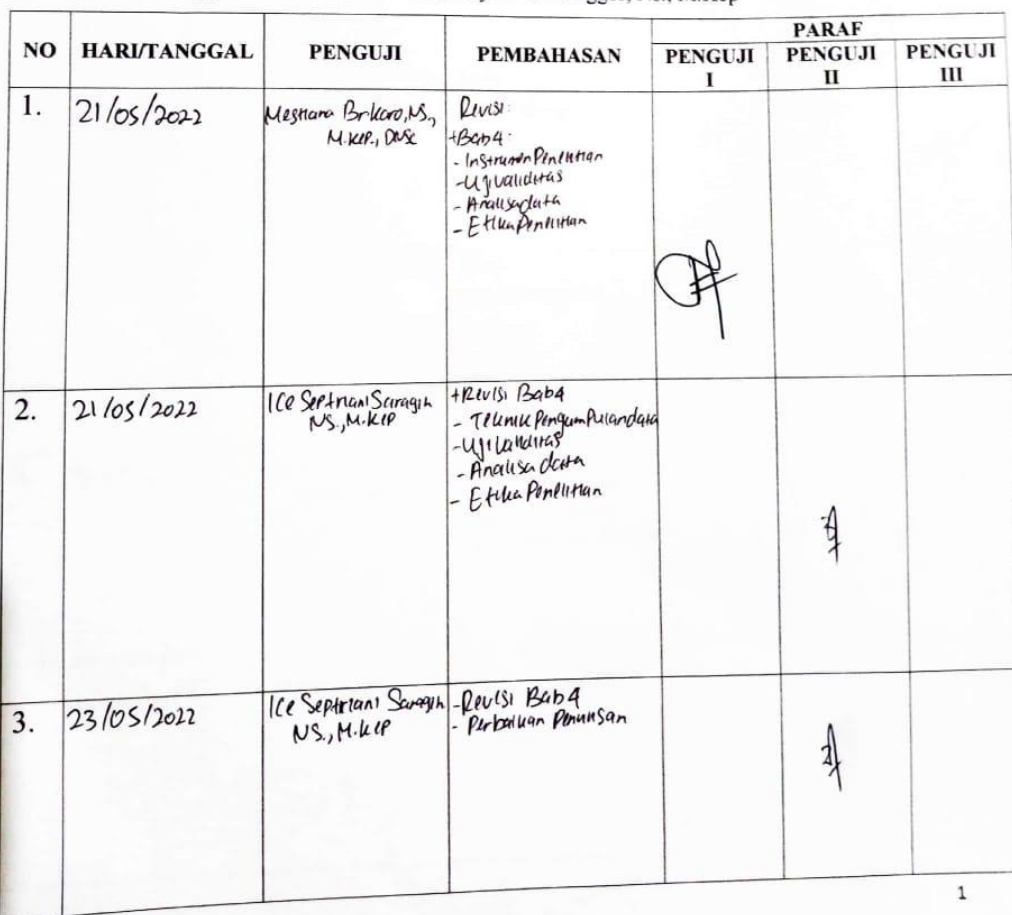 NO HARI/TANGGAL PENGUJI PEMBAHASAN PARAF
PENGUJI I PENGUJI II PENGUJI III
1. 21/05/2022 Mestiana Br.Karo, NS., M.Kep., DNSc
Revisi:
+Bab4:
- Instrumen Penelitian
- Uji Validitas
- Analisa data
- Etika Penelitian
2. 21/05/2022 Ice Septriani Saragih NS., M.Kep
+Revisi Bab4
- Teknik Pengumpulan data
- Uji Validitas
- Analisa data
- Etika Penelitian
3. 23/05/2022 Ice Septriani Saragih NS., M.Kep
- Revisi Bab4
- Perbaikan Penulisan
1